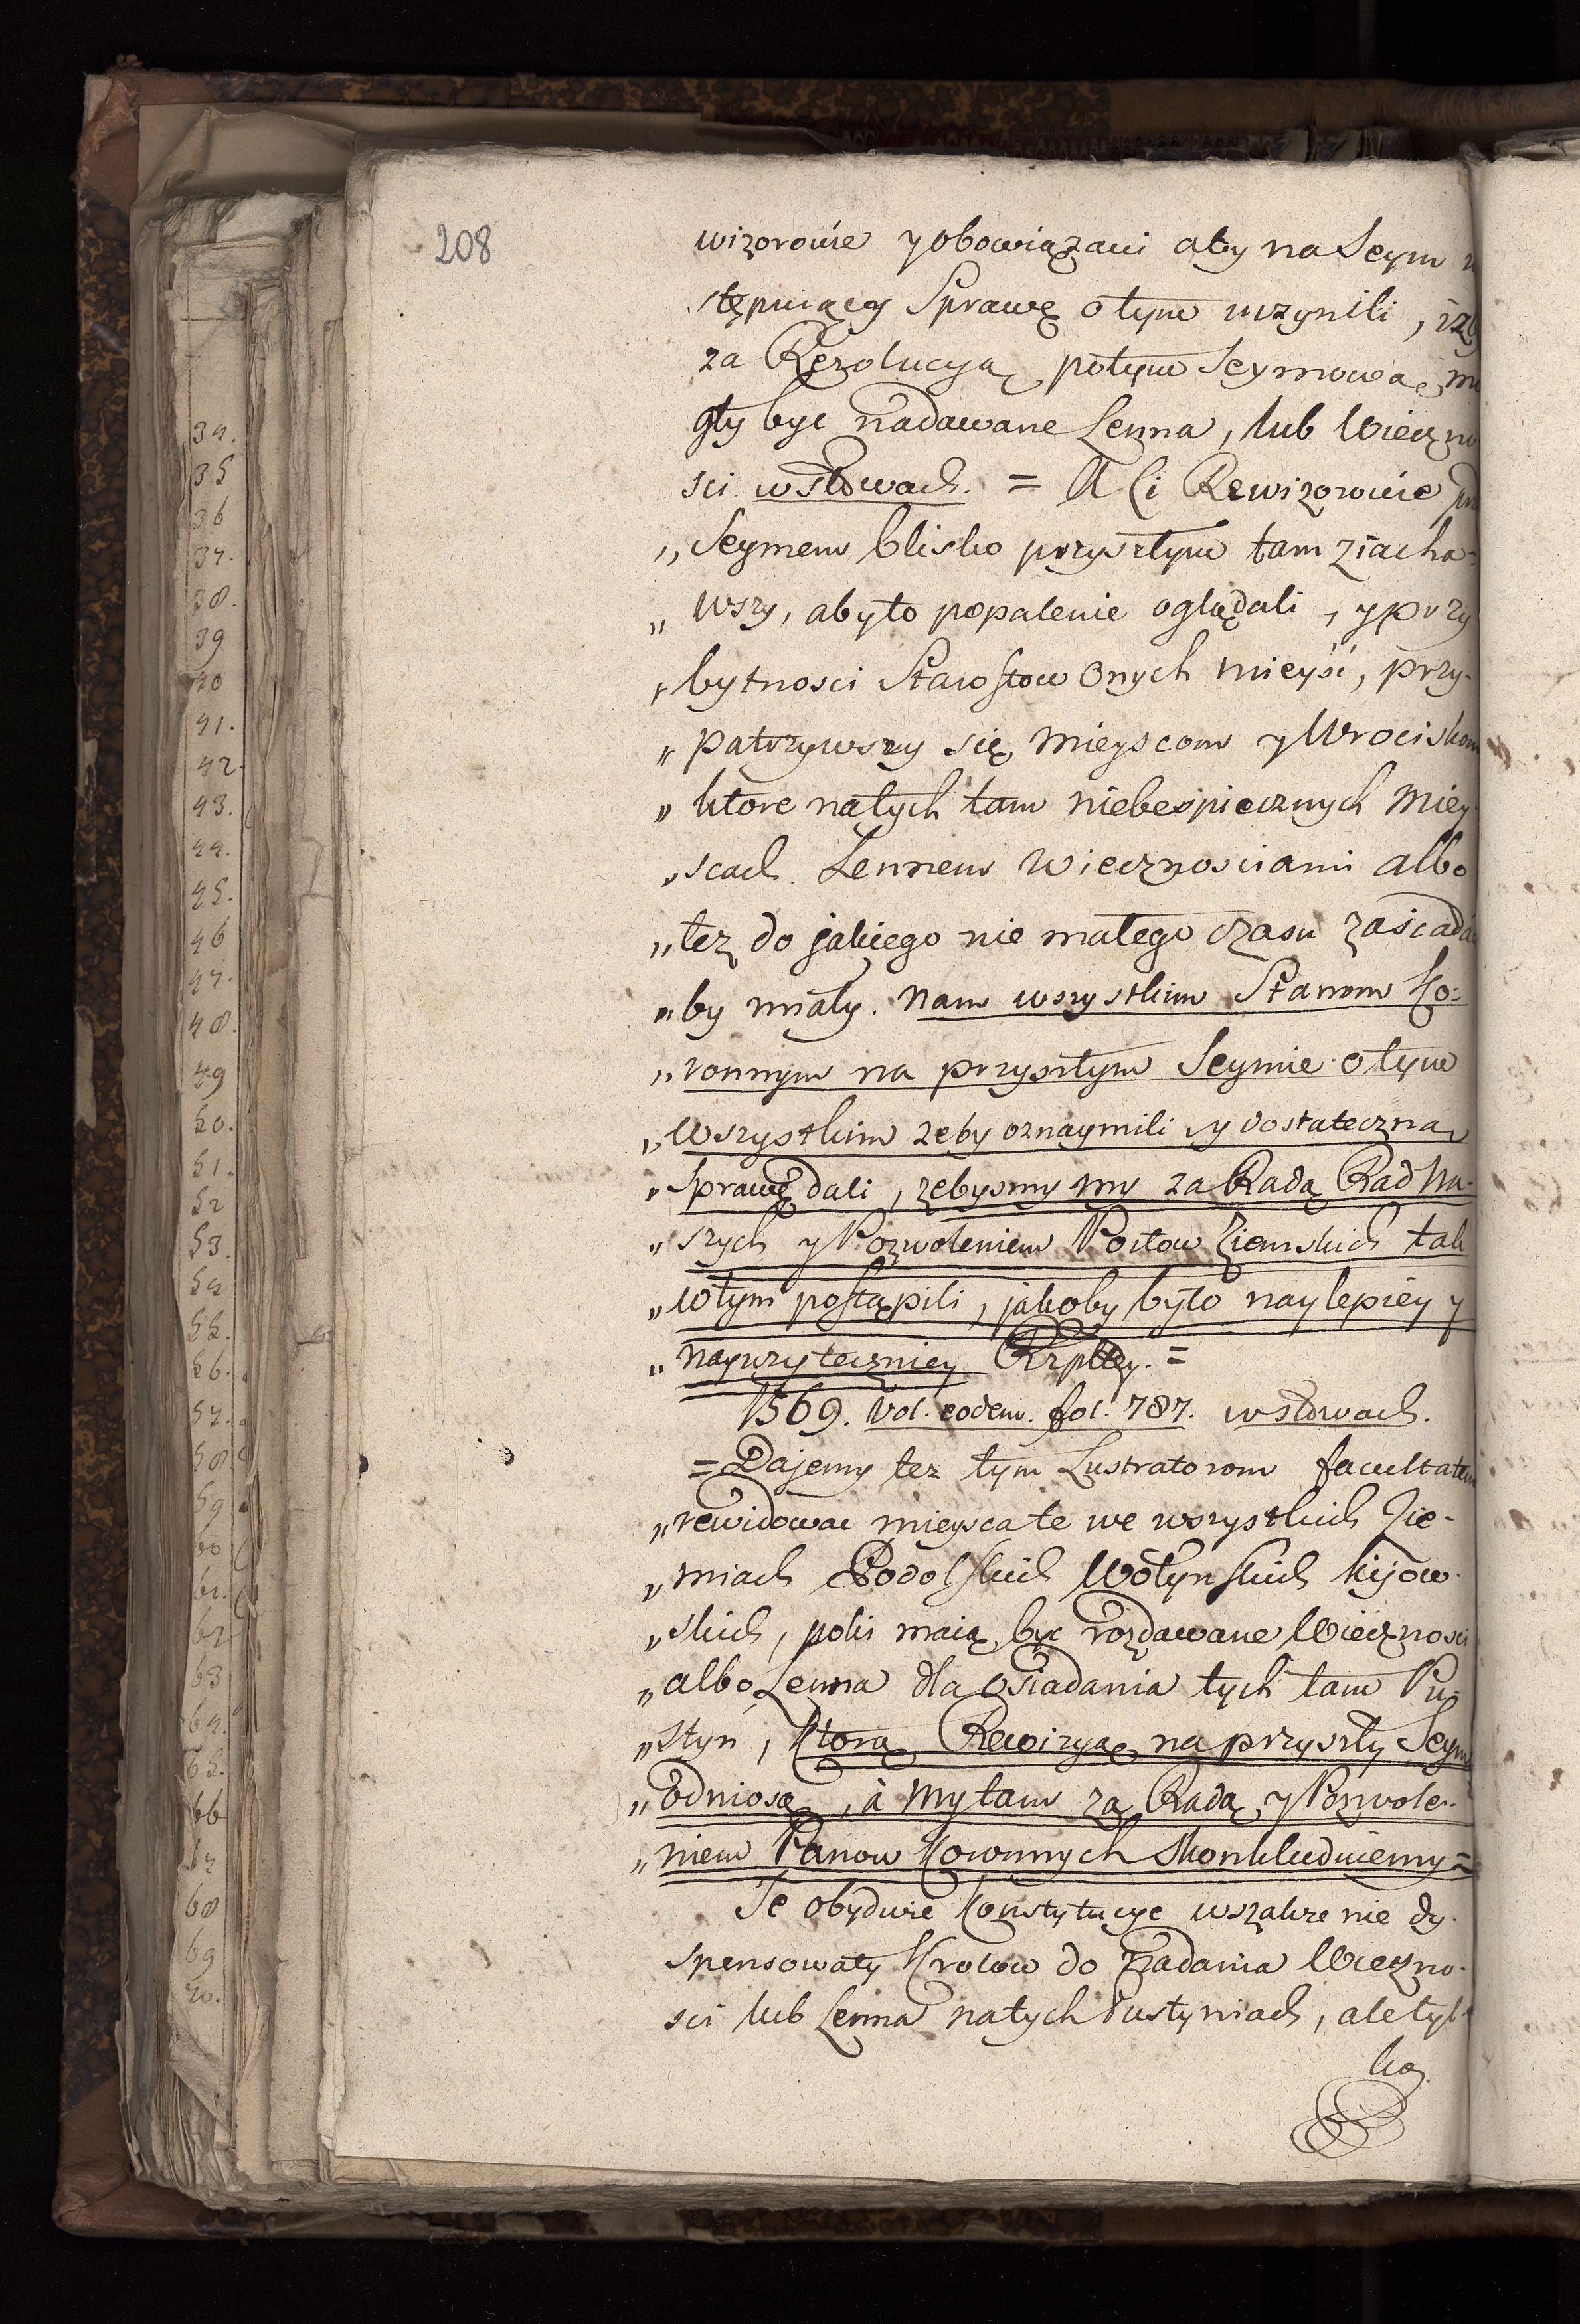 208
wizorowie y obowiązani aby na Seym
stępuiący Sprawę o tym uczynili, iż
za Rezolucyą potym Seymową mo
gły być nadawane Lenna, lub Wieczno
sci w słowach. = A Ci Rewizorowie
„ Seymem blisko przyszłym tam ziacha-
„ wszy, aby to popalenie oglądali, y przy
„ bytnosci Starostow Onych mieyść, przy-
„ patrzywszy się mieyscom y Wrociskom
„ ktore na tych tam niebespiecznych Miey
„ scach Lennem Wiecznosciami albo
„ tez do jakiego nie małego czasu zasiada
„ by miały. Nam wszystkim Stanom Ko:
„ ronnym na przyszłym Seymie o tym
„ Wszystkim zeby oznaymili y dostateczną
„ Sprawę dali, zebysmy my za Radą Rad Na-
„ szych y Pozwoleniem Posłow Ziemskich tak
„ w tym postąpili, jakoby było naylepiey y
„ nayuzyteczniey Rzpltey. =
1569. Vol. eodem. fol. 787. w słowach.
= Dajemy tez tym Lustratorom facultatem
„ rewidować mieysca te we wszystkich Zie-
„ miach Podolskich Wołynskich kijow-
„ skich, poki maią być rozdawane Wiecznosci
„ albo Lenna dla osiadania tych tam Pu-
„ styń, ktorą Rewizyą na przyszły Seym
„ odniosą, à my tam za Radą y Pozwole-
„ niem Panow Koronnych skonkludniemy =
Te obydwie Konstytucye wszakze nie dy-
spensowały Krolow do Nadania Wieczno-
sci lub Lenna na tych Pustyniach, ale tyl-
ko
34.
35
36
37.
38.
39
40
41.
42.
43.
44.
45.
46
47.
48.
49
50.
51.
52
53.
54
55.
56.
57.
58
59
60
61.
62
63
64.
65.
66
67
68
69
70.